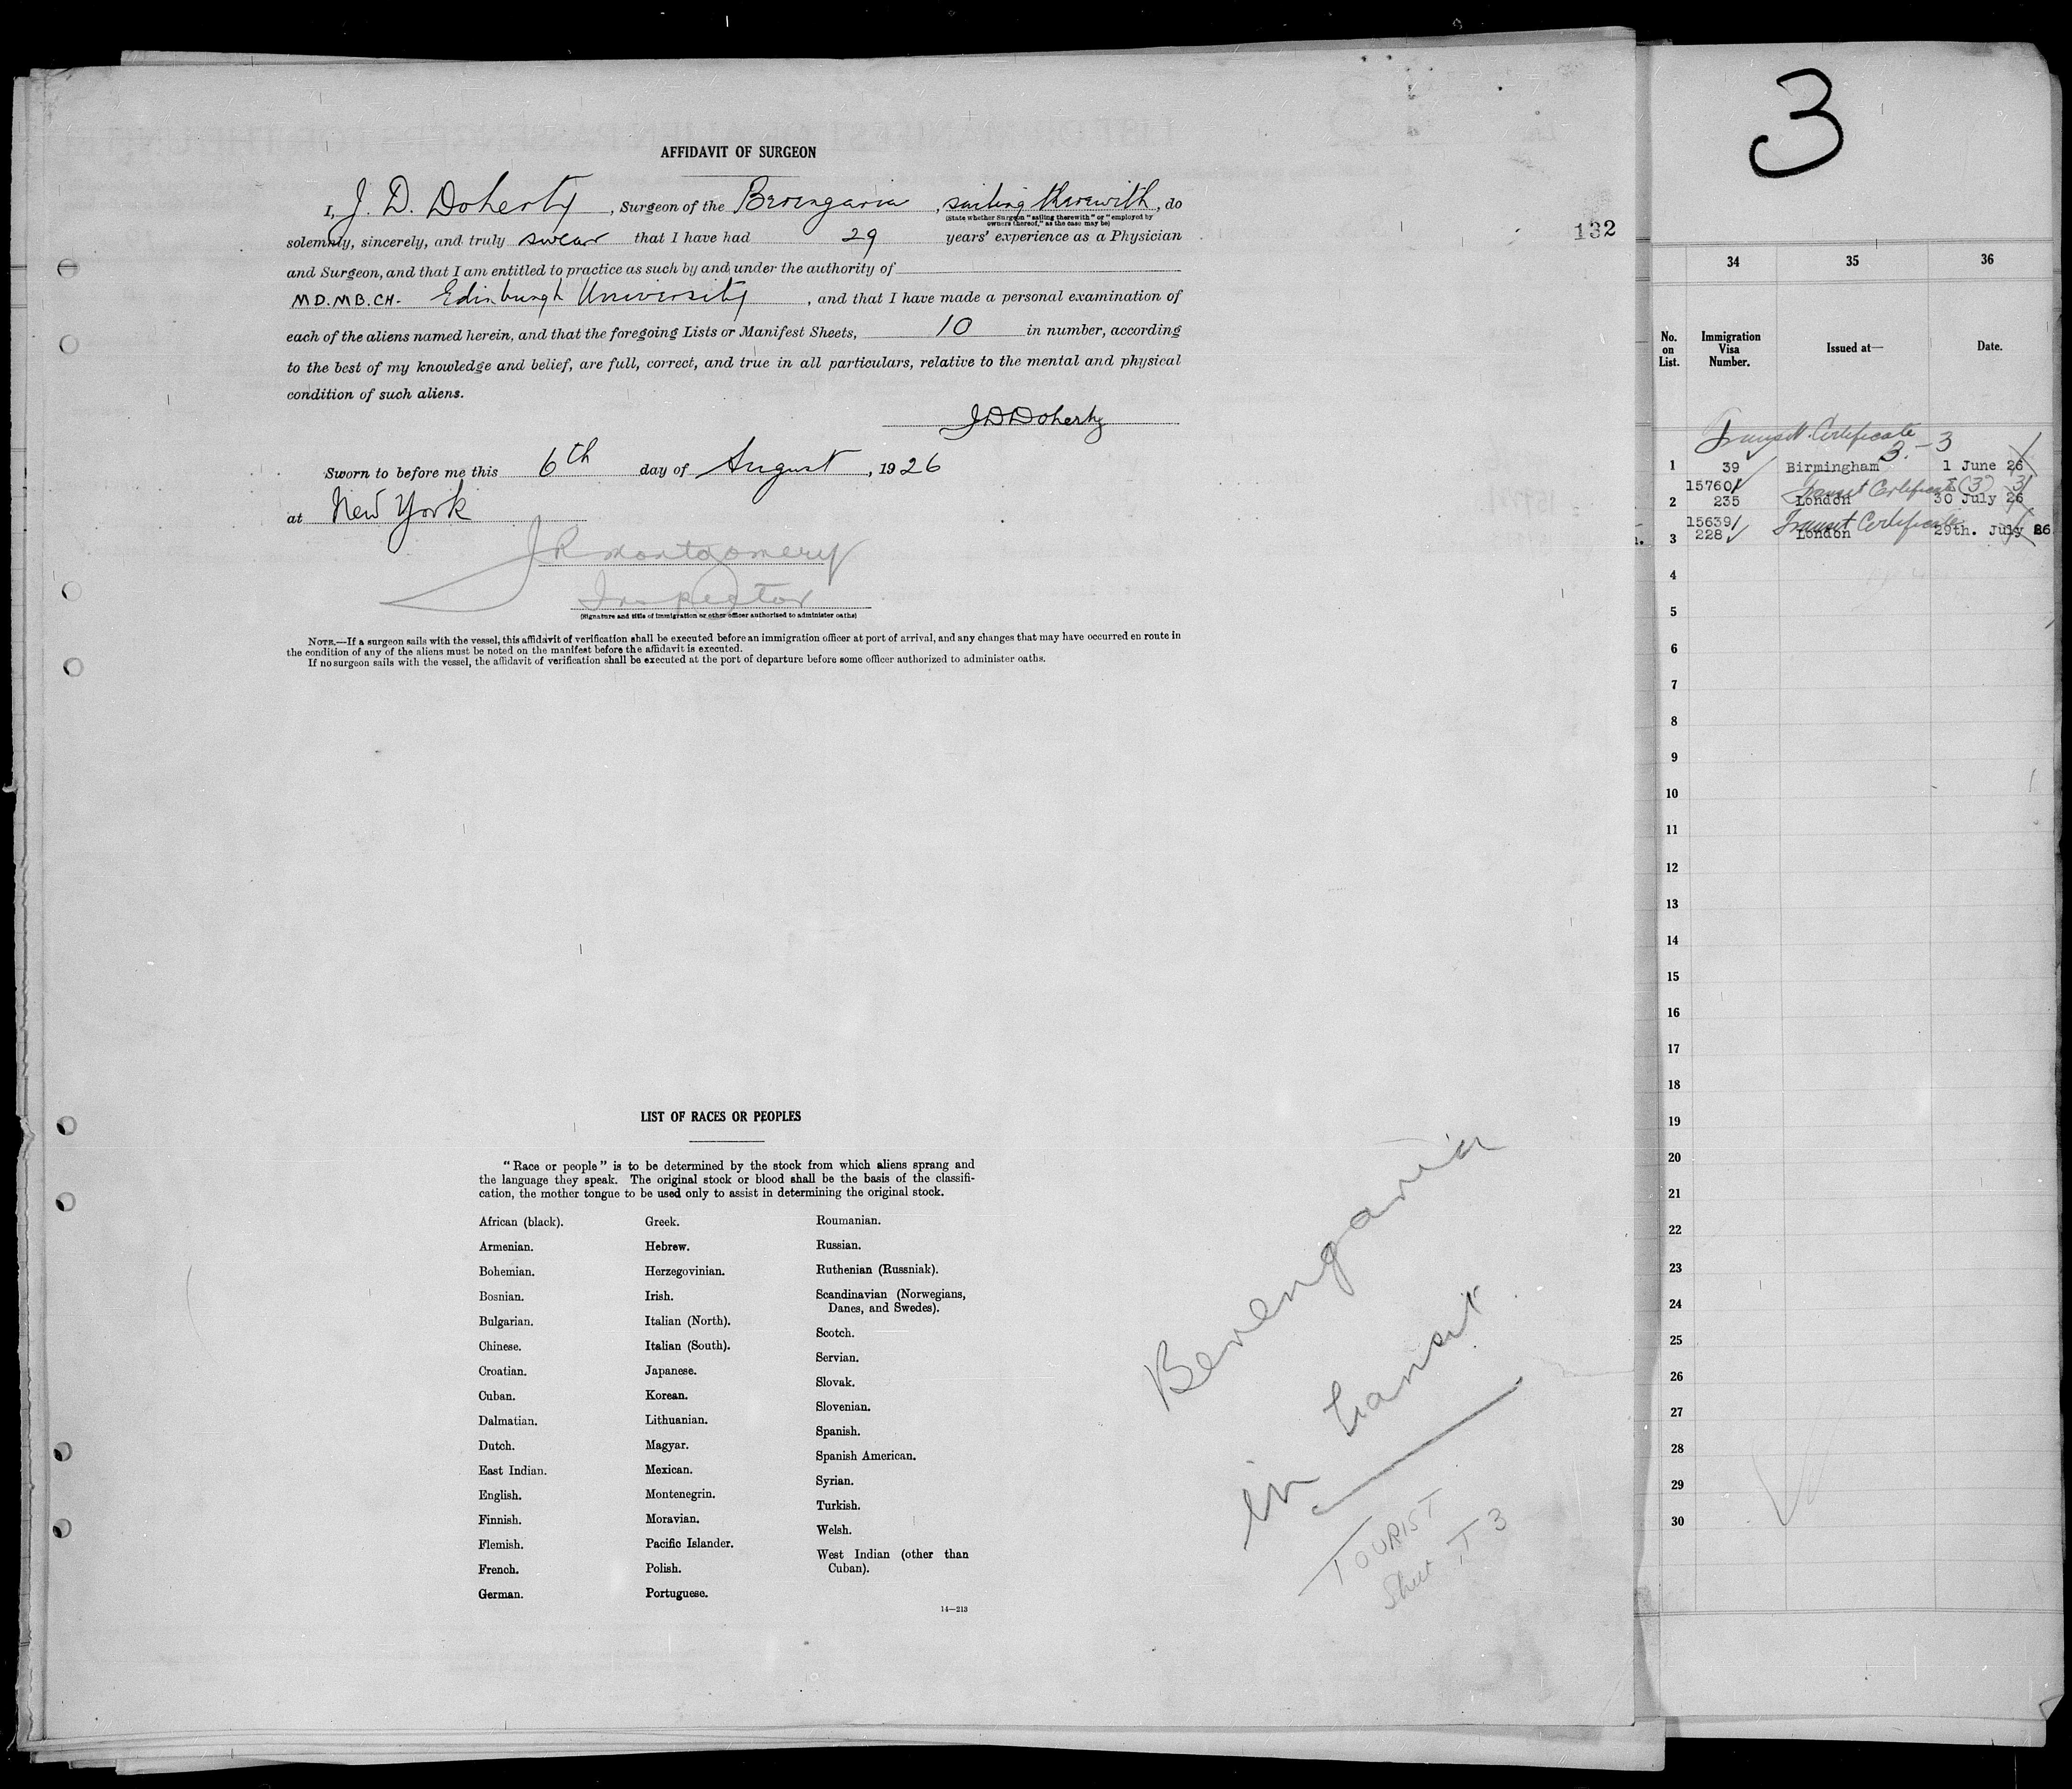 AFFIDAVIT OF SURGEON
I, J. D. Doherty, Surgeon of the Berengaria, sailing therewith, do
(State whether Surgeon "sailing therewith" or "employed by
owners thereof," as the case may be)
solemnly, sincerely, and truly swear that I have had 29 years' experience as a Physician
and Surgeon, and that I am entitled to practice as such by and under the authority of
MD. MB. CH. Edinburgh University, and that I have made a personal examination of
each of the aliens named herein, and that the foregoing Lists or Manifest Sheets, 10 in number, according
to the best of my knowledge and belief, are full, correct, and true in all particulars, relative to the mental and physical
condition of such aliens.
J D Doherty
Sworn to before me this 6th day of August, 1926
at New York
J R Montgomery
Inspector
(Signature and title of immigration or other officer authorized to administer oaths)
NOTE.—If a surgeon sails with the vessel, this affidavit of verification shall be executed before an immigration officer at port of arrival, and any changes that may have occurred en route in
the condition of any of the aliens must be noted on the manifest before the affidavit is executed.
If no surgeon sails with the vessel, the affidavit of verification shall be executed at the port of departure before some officer authorized to administer oaths.
LIST OF RACES OR PEOPLES
"Race or people" is to be determined by the stock from which aliens sprang and
the language they speak. The original stock or blood shall be the basis of the classifi-
cation, the mother tongue to be used only to assist in determining the original stock.
African (black).
Armenian.
Bohemian.
Bosnian.
Bulgarian.
Chinese.
Croatian.
Cuban.
Dalmatian.
Dutch.
East Indian.
English.
Finnish.
Flemish.
French.
German.
Greek.
Hebrew.
Herzegovinian.
Irish.
Italian (North).
Italian (South).
Japanese.
Korean.
Lithuanian.
Magyar.
Mexican.
Montenegrin.
Moravian.
Pacific Islander.
Polish.
Portuguese.
Roumanian.
Russian.
Ruthenian (Russniak).
Scandinavian (Norwegians,
Danes, and Swedes).
Scotch.
Servian.
Slovak.
Slovenian.
Spanish.
Spanish American.
Syrian.
Turkish.
Welsh.
West Indian (other than
Cuban).
14—213
Berengaria
in transit
TOURIST
Sheet T 3
132
3
34 35 36
No. on List. Immigration Visa Number. Issued at— Date.
Transit Certificate
3.-3
1 39 Birmingham 1 June 26
15760 Transit Certificate (3) 3
2 235 London 30 July 26
15639 Transit Certificate
3 228 London 29th. July 26
4
5
6
7
8
9
10
11
12
13
14
15
16
17
18
19
20
21
22
23
24
25
26
27
28
29
30